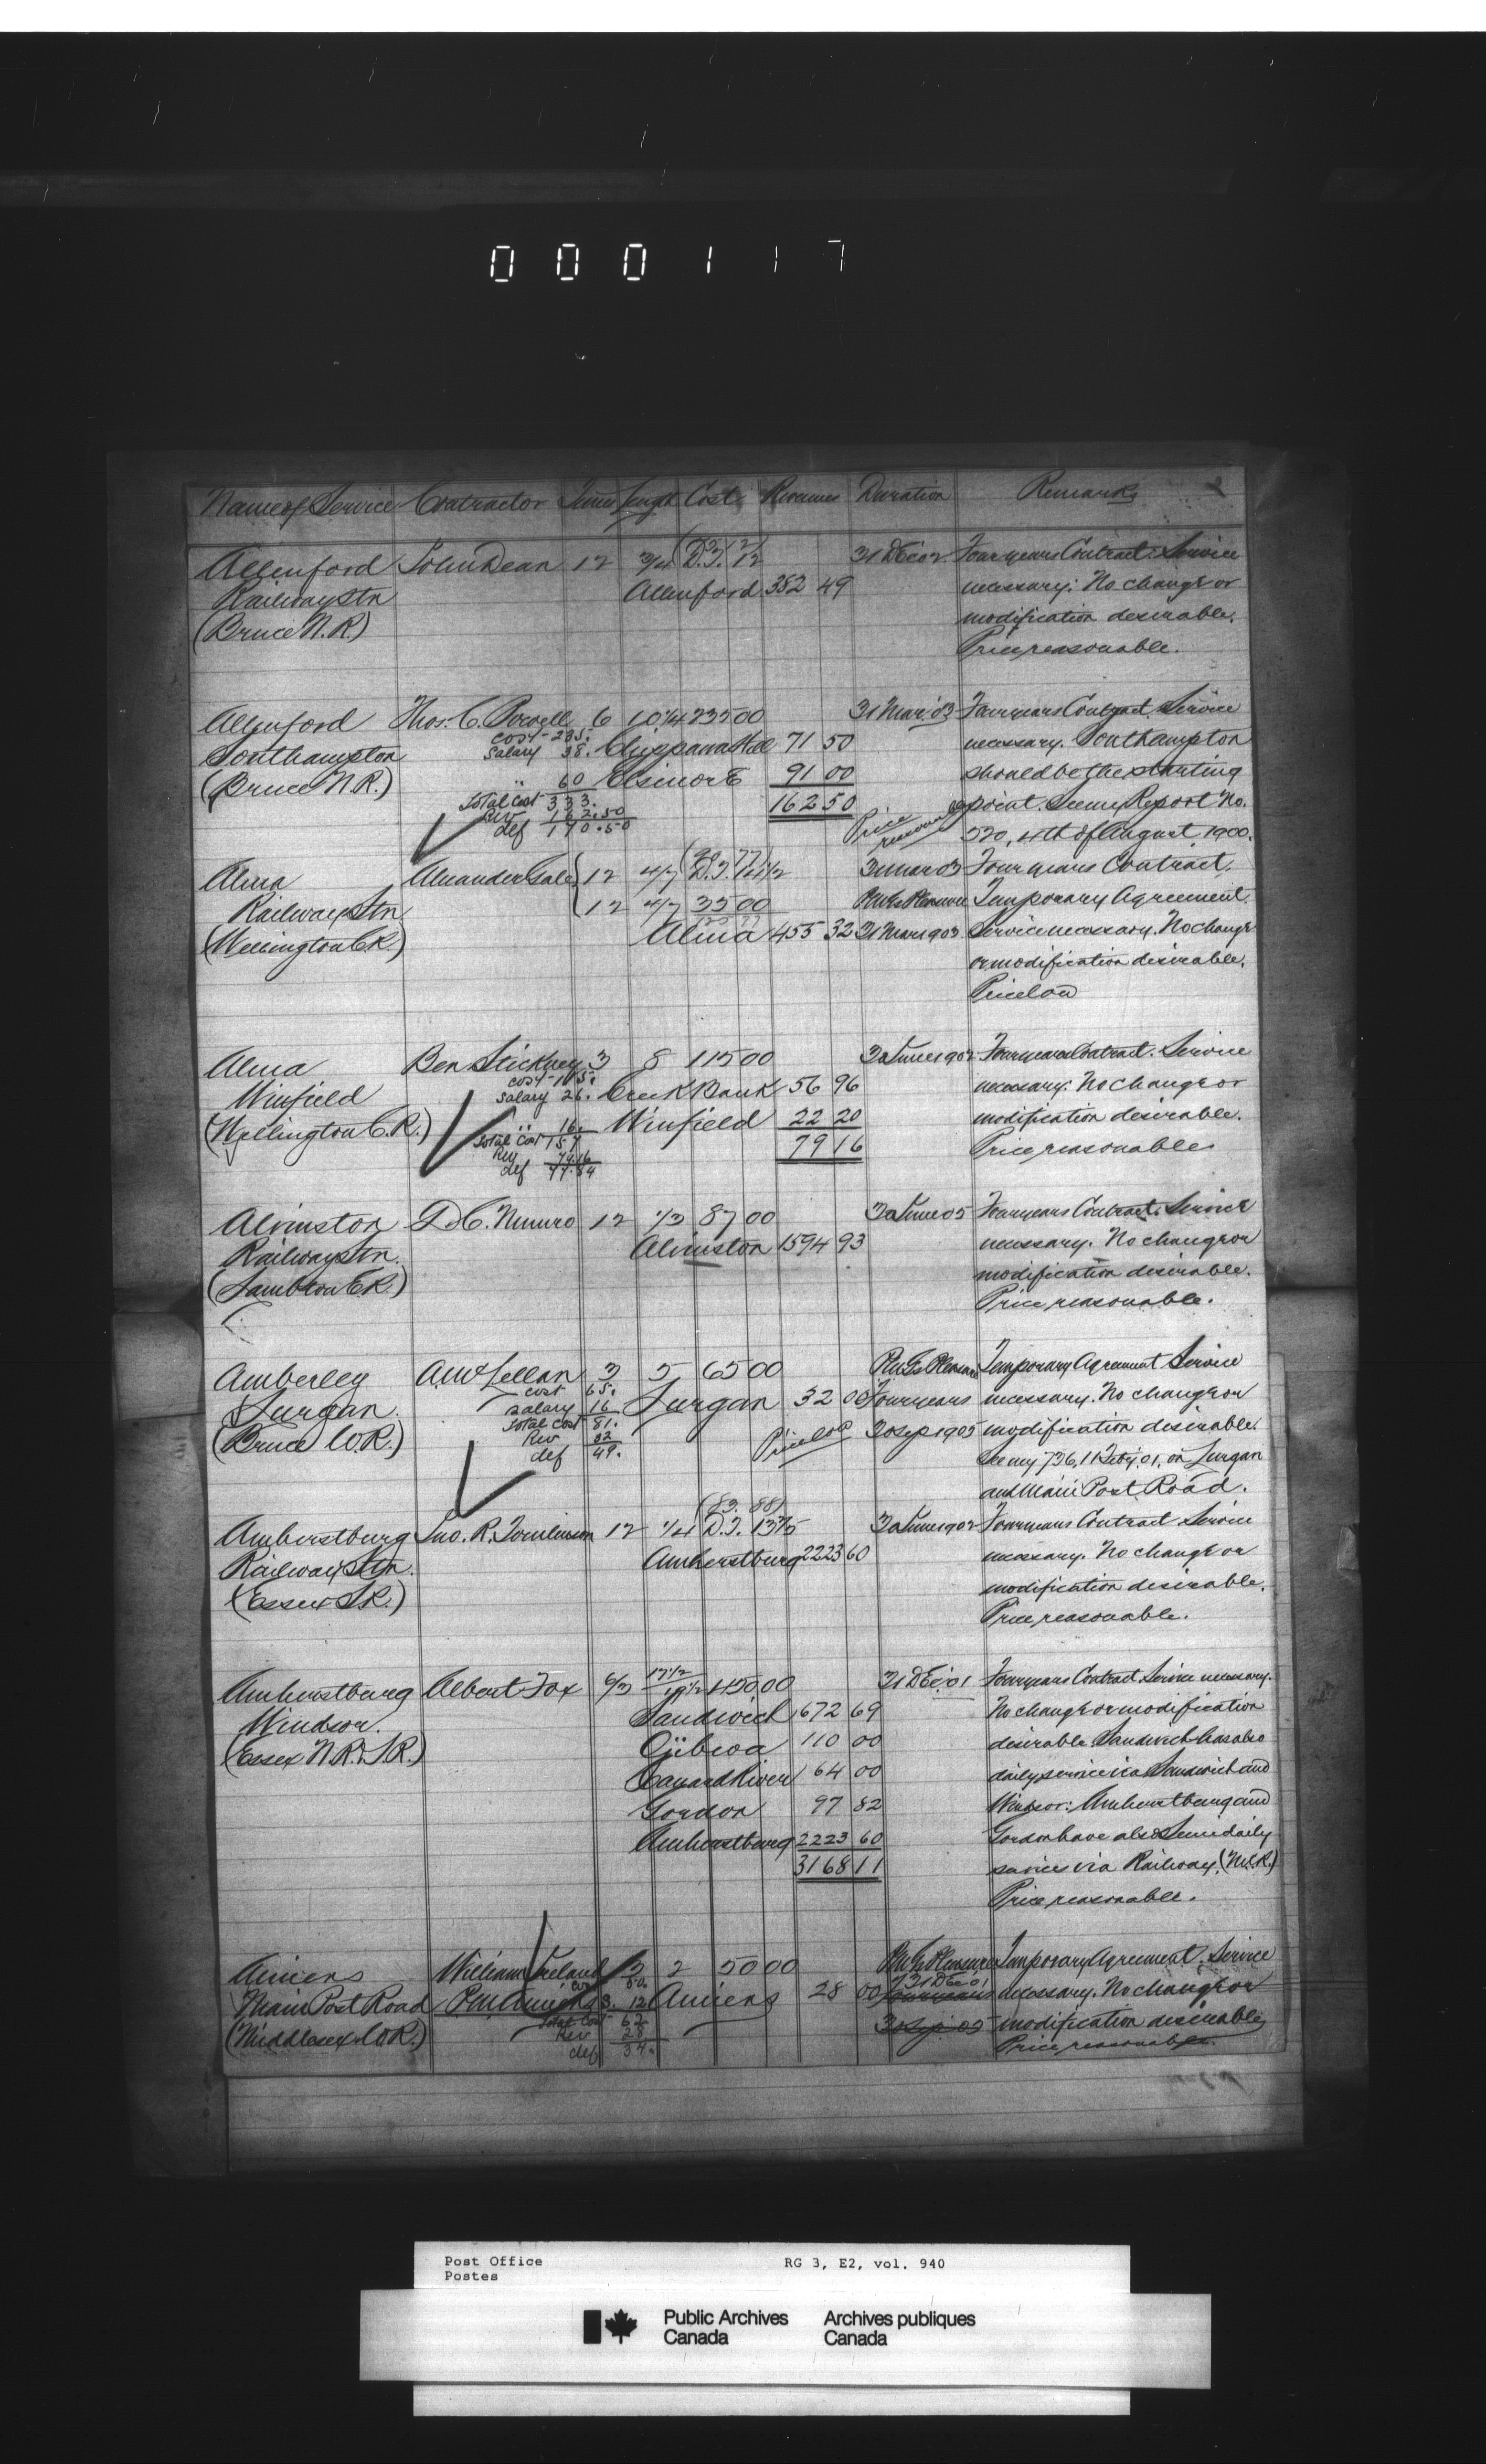 000117
Name of Service Contractor Times Length Cost Revenue Duration Remarks
(75 12)
Allenford John Dean 12 3/4 D.T. 12 31 Dec 02 Four years Contract. Service
Railway Stn Allenford 382 49 necessary: No change or
(Bruce N.R) modification desirable.
Price reasonable.
Allenford Thos. C. Powell 6 10 1/4 235 00 31 Mar. 03 Four years Contract. Service
cost - 235.
Southampton Salary 38. Chippawa Hill 71 50 necessary. Southampton
(Bruce N.R.) " 60 Elsinore 91 00 should be the starting
Total Cost 333. 162 50 point. See my Report No.
Rev 162.50 Price reasonable
def 170.50 520, 4th of August 1900.
Alma Alexander Gale 12 4/7 D.T. 14 1/2 31 Mar 03 Four years Contract.
Railway Stn 12 4/7 35 00 P.M.G's Pleasure Temporary Agreement.
(Wellington C.R.) Alma 455 32 31 Mar 1903 Service necessary. No change
or modification desirable.
Price low
Alma Ben Stickney 3 8 115 00 30 June 1902 Four years Contract. Service
cost - 115.
Winfield Salary 26. Creek Bank 56 96 necessary: No change or
(Wellington C.R.) " 16. Winfield 22 20 modification desirable.
Total Cost 157 79 16 Price reasonable
Rev 79.16
def 77.84
Alvinston D. C. Munro 12 1/3 87 00 30 June 05 Four years Contract. Service
Railway Stn. Alvinston 1594 93 necessary. No change or
(Lambton E.R.) modification desirable.
Price reasonable.
Amberley A. McLellan 3 5 65 00 P.M.G's Pleasure Temporary Agreement Service
cost 65.
Lurgan. Salary 16 Lurgan 32 00 Four years necessary. No change or
(Bruce W.R.) Total Cost 81. Price low 30 Sep 1905 modification desirable.
Rev 32
def 49. See my 736, 11 Feby. 01, on Lurgan
and Main Post Road.
(83. 88)
Amherstburg Jno. R. Tomlinson 12 1/4 D.T. 13 75 30 June 1902 Four years Contract Service
Railway Stn. Amherstburg 2223 60 necessary. No change or
(Essex S.R.) modification desirable.
Price reasonable.
Amherstburg Albert Fox 6/3 17 1/2 19 1/2 450 00 31 Dec. 01 Four years Contract Service necessary.
Windsor. Sandwich 672 69 No change or modification
(Essex N.R. & S.R.) Ojibwa 110 00 desirable Sandwich has also
Canard River 64 00 daily service via Sandwich and
Gordon 97 82 Windsor: Amherstburg and
Amherstburg 2223 60 Gordon have also Semi daily
3168 11 services via Railway. (M.C.R.)
Price reasonable.
Amiens William Ireland 3 2 50 00 P.M.G's Pleasure Temporary Agreement. Service
cost 50. 31 Dec. 01
Main Post Road P.M. Amiens S. 12 Amiens 28 00 Four years necessary. No change or
(Middlesex W.R.) Total Cost 62 30 Sep. 05 modification desirable
Rev 28 Price reasonable.
def 34.
Post Office RG 3, E2, vol. 940
Postes
Public Archives Archives publiques
Canada Canada